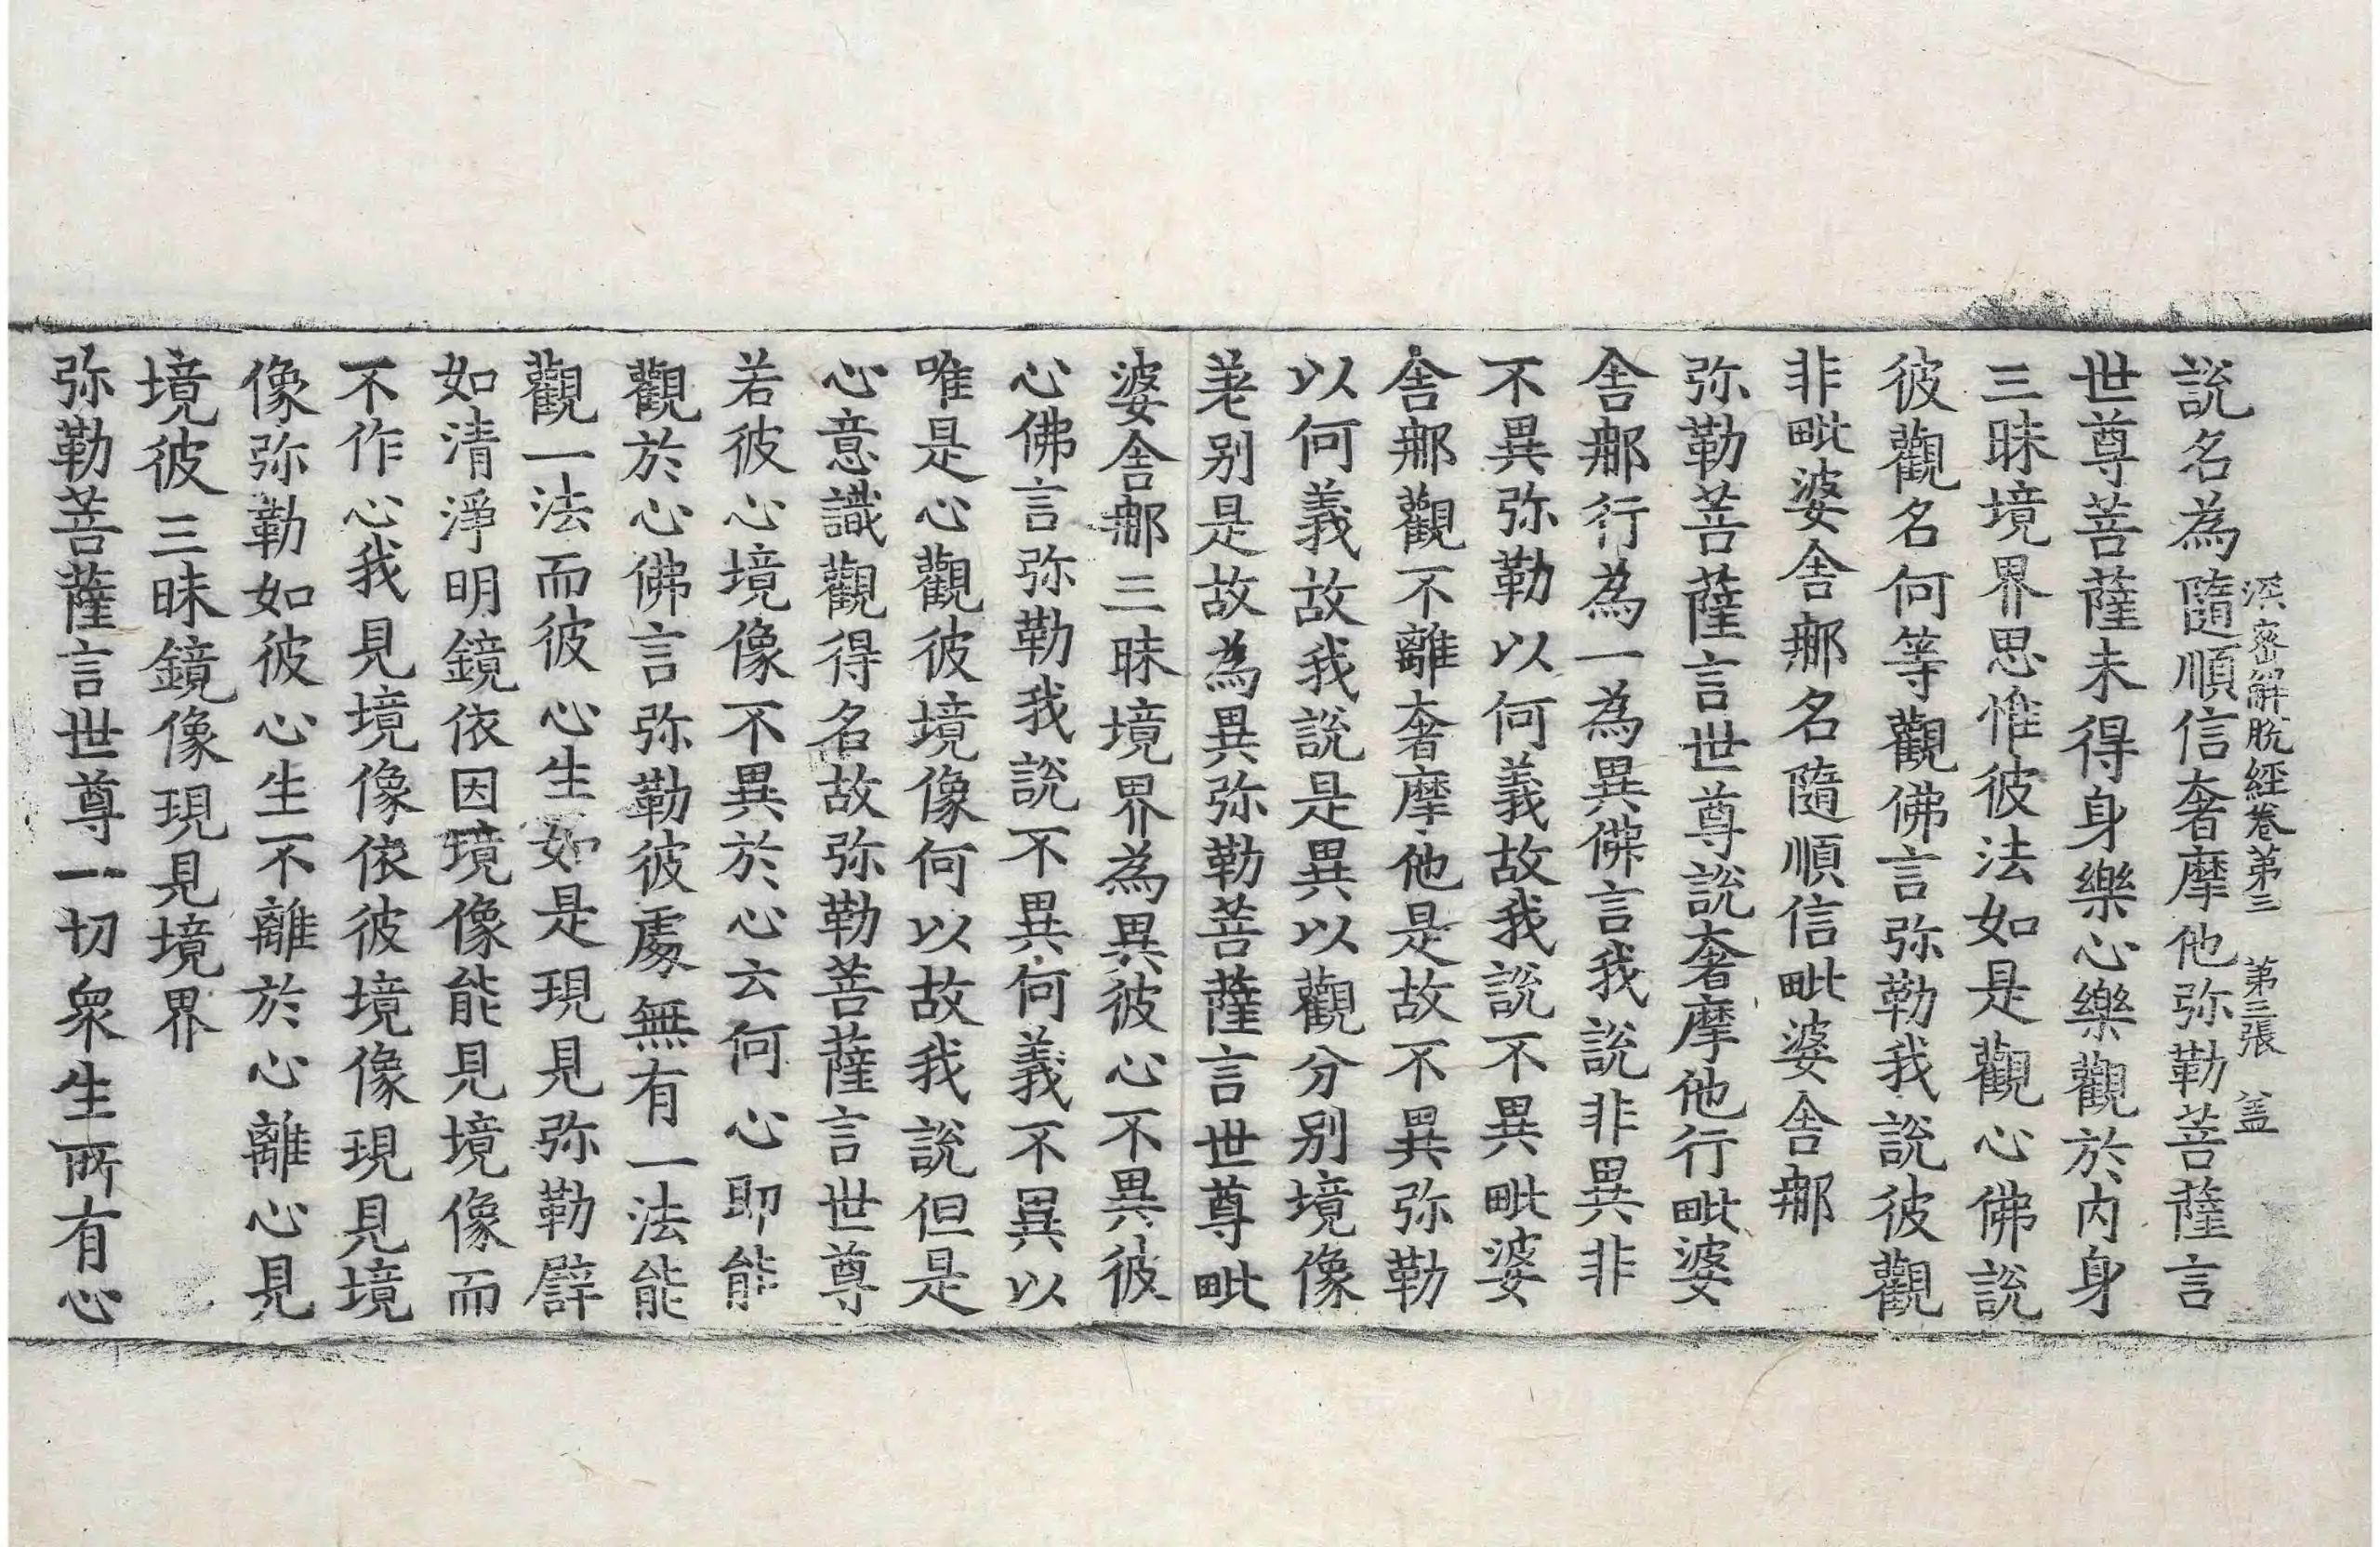 深密解脫經卷第三　第三張　盖
説名為隨順信奢摩他弥勒菩薩言
世尊菩薩未得身樂心樂觀於内身
三昧境界思惟彼法如是觀心佛説
彼觀名何等觀佛言弥勒我説彼觀
非毗婆舍郍名隨順信毗婆舍郍
弥勒菩薩言世尊説奢摩他行毗婆
舍郍行為一為異佛言我説非異非
不異弥勒以何義故我説不異毗婆
舍郍觀不離奢摩他是故不異弥勒
以何義故我説是異以觀分别境像
差别是故為異弥勒菩薩言世尊毗
婆舍郍三昧境界為異彼心不異彼
心佛言弥勒我説不異何義不異以
唯是心觀彼境像何以故我説但是
心意識觀得名故弥勒菩薩言世尊
若彼心境像不異於心云何心即能
觀於心佛言弥勒彼處無有一法能
觀一法而彼心生如是現見弥勒譬
如清淨明鏡依因境像能見境像而
不作心我見境像依彼境像現見境
像弥勒如彼心生不離於心離心見
境彼三昧鏡像現見境界
弥勒菩薩言世尊一切衆生所有心